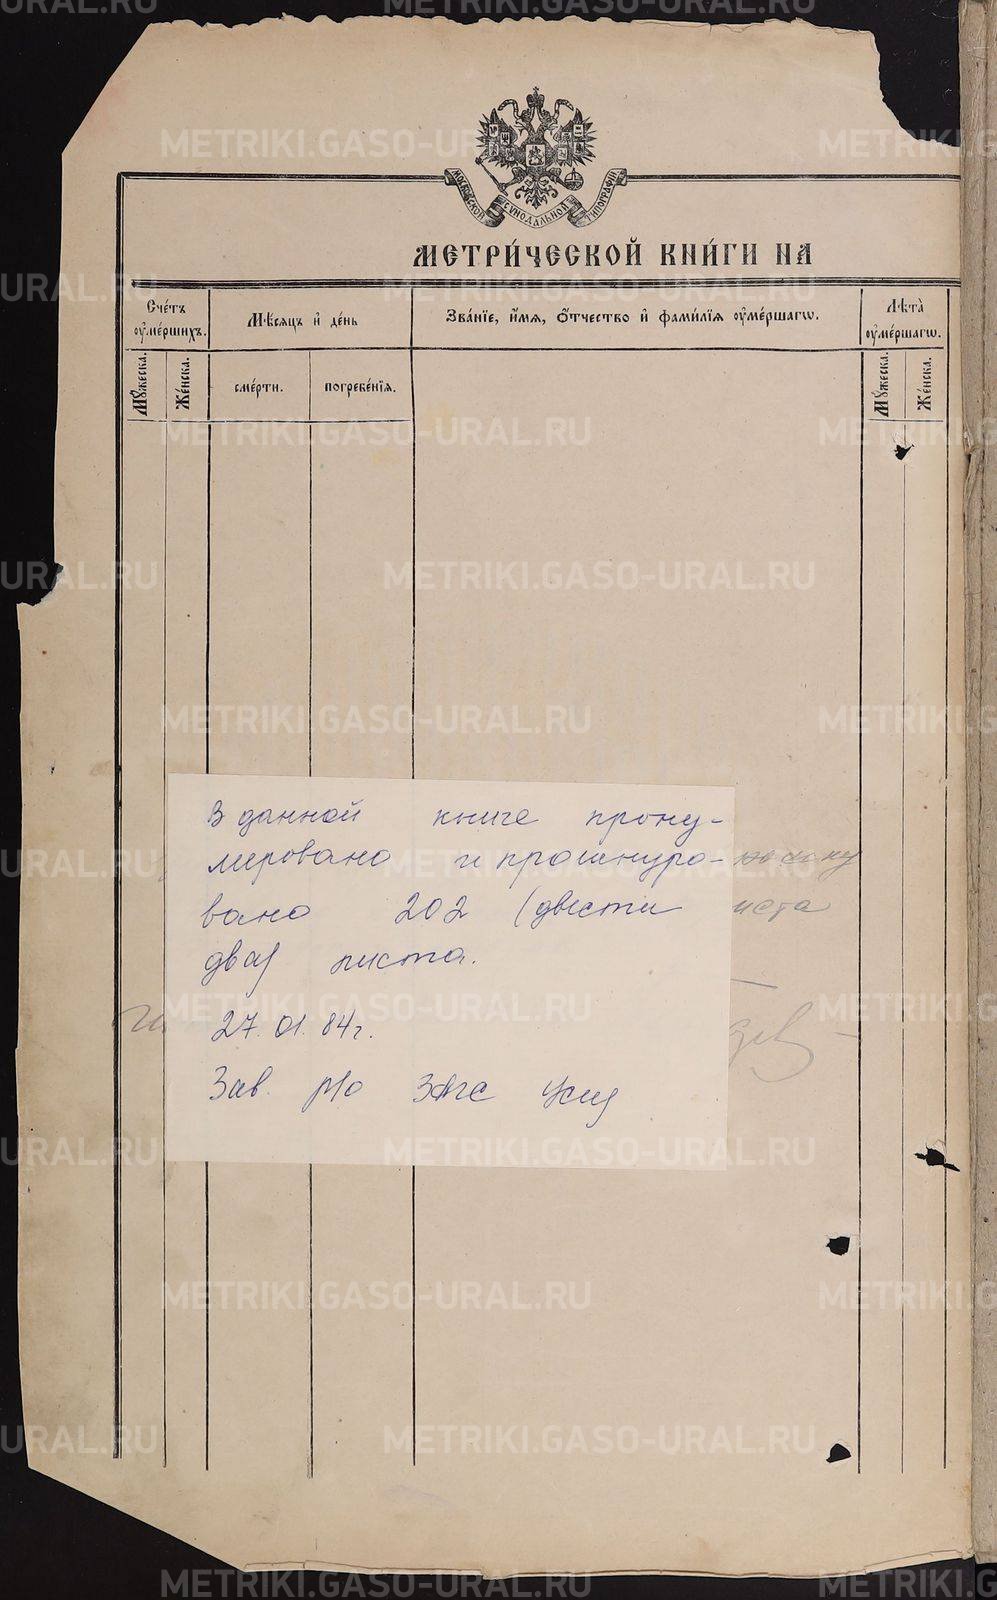 МОСКОВСКОЙ СѴНОДАЛЬНОЙ ТИПОГРАФІИ
МЕТРИ́ЧЕСКОЙ КНИ́ГИ НА
Сче́тъ ᲂу҆ме́ршихъ.
Мѣ́сяцъ и҆ де́нь
Зва́нїе, и҆́мя, ѻ҆́тчество и҆ фами́лїя ᲂу҆ме́ршагѡ.
Лѣ́та ᲂу҆ме́ршагѡ.
Мꙋ́жеска.
Же́нска.
сме́рти.
погребе́нїя.
Мꙋ́жеска.
Же́нска.
В данной книге прону-
меровано и прошнуро-
вано 202 (двести
два) листа.
27.01.84г.
Зав. р/о ЗАГС
METRIKI.GASO-URAL.RU